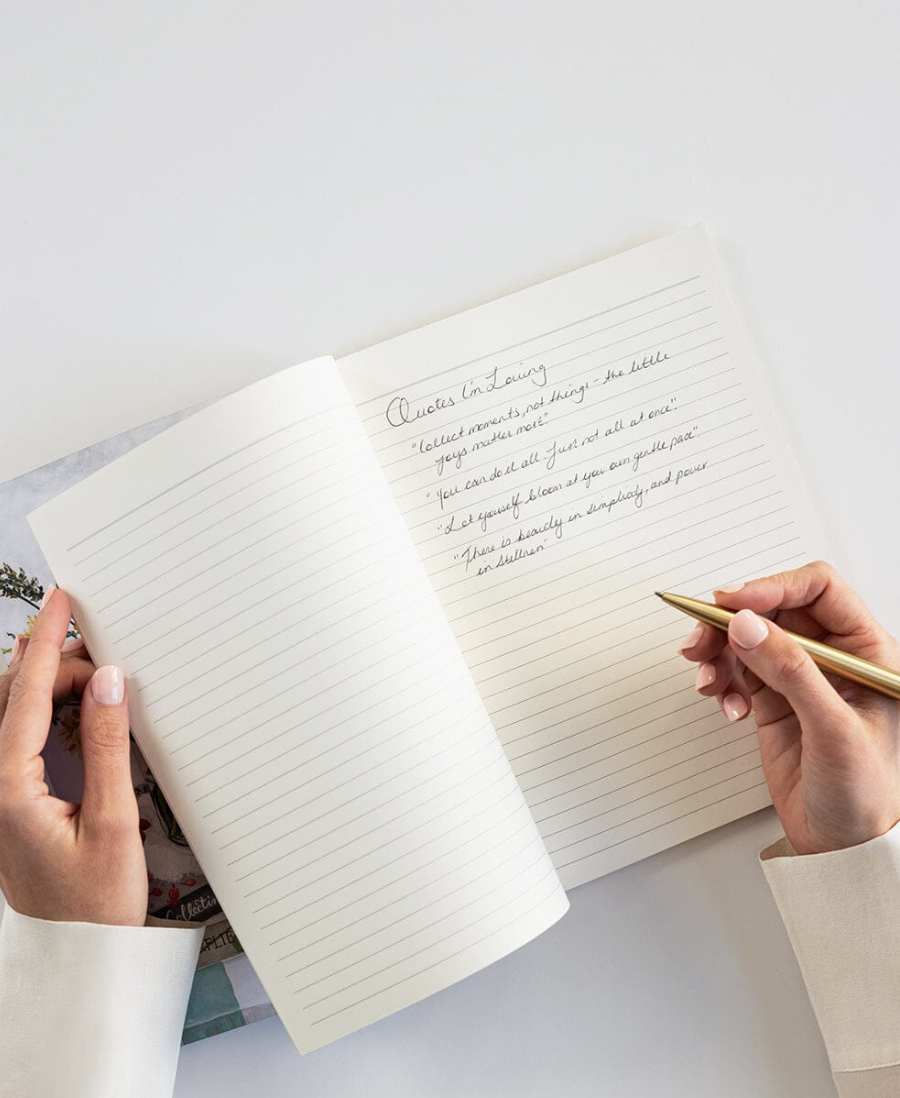 Quotes I'm Loving
"Collect moments, not things - the little
joys matter most."
"You can do it all - Just not all at once".
"Let yourself bloom at your own gentle pace".
"There is beauty in simplicity, and power
in Stillness"
Collectin